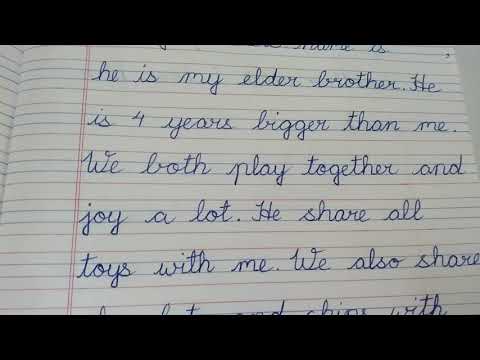 name is ,
he is my elder brother. He
is 4 years bigger than me.
We both play together and
joy a lot. He share all
toys with me. We also share
and chips with